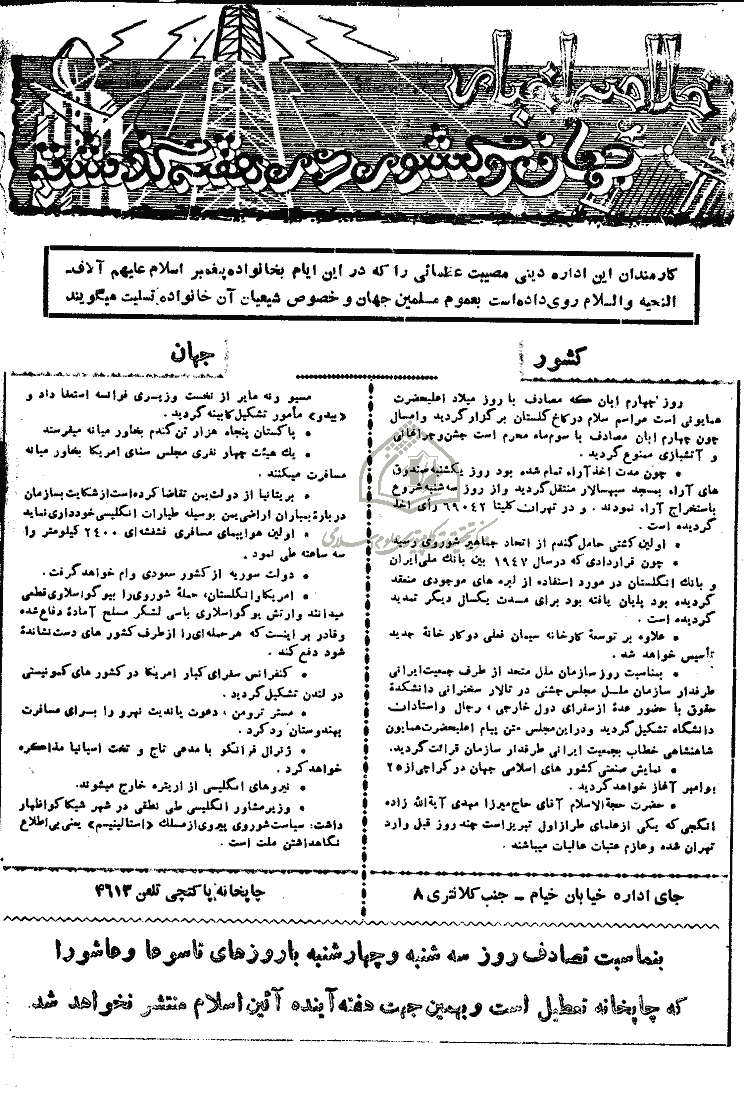 خلاصه اخبار
جهان و کشور در هفته گذشته
کارمندان این اداره دینی مصیبت عظمائی را که در این ایام بخانواده پیغمبر اسلام علیهم آلاف
التحیه والسلام روی داده است بعموم مسلمین جهان و خصوص شیعیان آن خانواده تسلیت میگویند
کشور
روز چهارم ابان که مصادف با روز میلاد اعلیحضرت
همایونی است مراسم سلام در کاخ گلستان برگزار گردید و امسال
چون چهارم ابان مصادف با سوم ماه محرم است جشن و چراغانی
و آتشبازی ممنوع گردید .
• چون مدت اخذ آراء تمام شده بود روز یکشنبه صندوق
های آراء بمسجد سپهسالار منتقل گردید و از روز سه شنبه شروع
باستخراج آراء نمودند . و در تهران کلیتا ۶۹۰۴۲ رأی اخذ
گردیده است .
• اولین کشتی حامل گندم از اتحاد جماهیر شوروی رسید
• چون قراردادی که در سال ۱۹۴۷ بین بانک ملی ایران
و بانک انگلستان در مورد استفاده از لیره های موجودی منعقد
گردیده بود پایان یافته بود برای مدت یکسال دیگر تمدید
گردیده است .
• علاوه بر توسعه کارخانه سیمان فعلی دو کار خانهٔ جدید
تأسیس خواهد شد .
• بمناسبت روز سازمان ملل متحد از طرف جمعیت ایرانی
طرفدار سازمان ملل مجلس جشنی در تالار سخنرانی دانشکدهٔ
حقوق با حضور عدهٔ از سفرای دول خارجی ، رجال و استادان
دانشگاه تشکیل گردید و در این مجلس متن پیام اعلیحضرت همایون
شاهنشاهی خطاب بجمعیت ایرانی طرفدار سازمان قرائت گردید.
• نمایش صنعتی کشور های اسلامی جهان در کراچی از ۲۵
نوامبر آغاز خواهد گردید .
• حضرت حجةالاسلام آقای حاج میرزا مهدی آیةالله زاده
انگجی که یکی از علمای طراز اول تبریز است چند روز قبل وارد
تهران شده و عازم عتبات عالیات میباشند .
جهان
مسیو رنه مایر از نخست وزیری فرانسه استعفا داد و
«بیدو» مأمور تشکیل کابینه گردید .
• پاکستان پنجاه هزار تن گندم بخاور میانه میفرستد
• یک هیئت چهار نفری مجلس سنای امریکا بخاور میانه
مسافرت میکنند .
• بریتانیا از دولت یمن تقاضا کرده است از شکایت بسازمان
دربارهٔ بمباران اراضی یمن بوسیله طیارات انگلیسی خودداری نماید
• اولین هواپیمای مسافری فشفشه‌ای ۲۴۰۰ کیلومتر را
سه ساعته طی نمود .
• دولت سوریه از کشور سعودی وام خواهد گرفت .
• امریکا و انگلستان، حملهٔ شوروی را بیوگواسلاوی قطعی
میدانند وارتش یوگواسلاوی باسی لشگر مسلح آمادهٔ دفاع شده
و قادر بر اینست که هر حمله‌ای را از طرف کشور های دست نشاندهٔ
شود دفع کند .
• کنفرانس سفرای کبار امریکا در کشور های کمونیستی
در لندن تشکیل گردید .
• مستر ترومن ، دعوت پاندیت نهرو را برای مسافرت
بهندوستان رد کرد .
• ژنرال فرانکو با مدعی تاج و تخت اسپانیا مذاکره
خواهد کرد .
• نیروهای انگلیسی از اریتره خارج میشوند.
• وزیر مشاور انگلیسی طی نطقی در شهر شیکاگو اظهار
داشت: سیاست شوروی پیروی از مسلک «استالینیسم» یعنی بی اطلاع
نگاهداشتن ملت است .
جای اداره خیابان خیام - جنب کلانتری ۸
چاپخانه پاکتچی تلفن ۴۶۱۳
بمناسبت تصادف روز سه شنبه و چهارشنبه با روزهای تاسوعا و عاشورا
که چاپخانه تعطیل است و بهمین جهت هفته آینده آئین اسلام منتشر نخواهد شد.